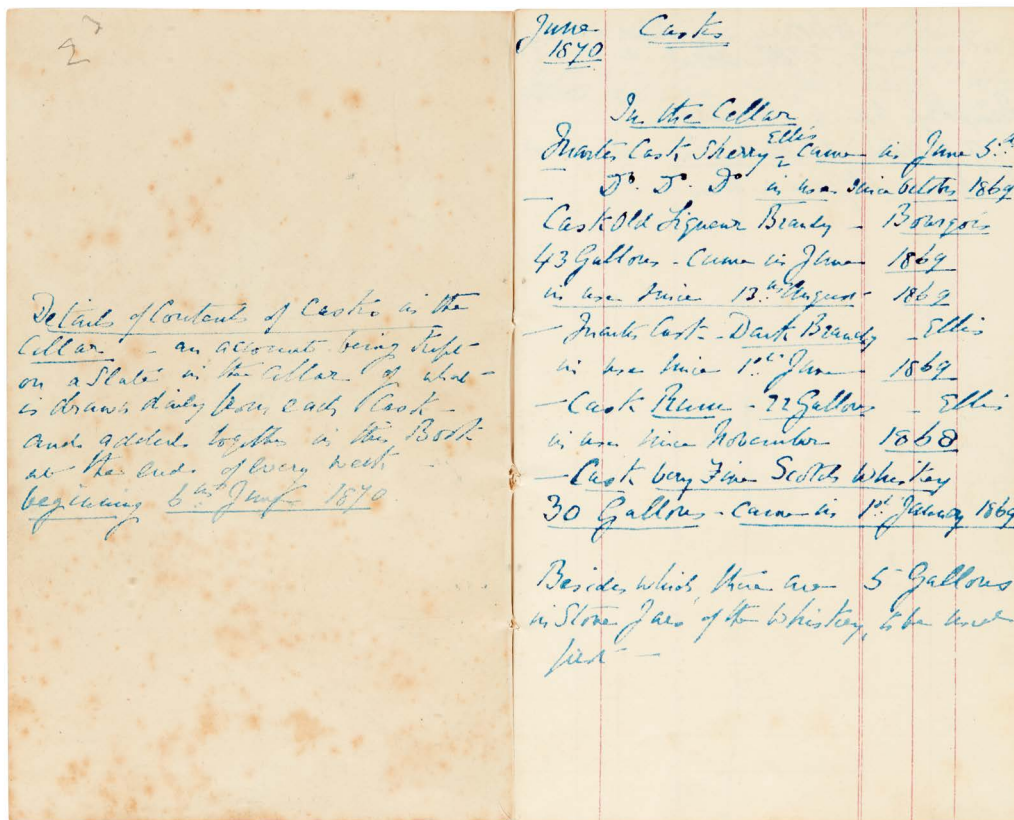 27
Details of Contents of Casks in the
Cellar - an account being kept
on a Slate in the Cellar of what
is drawn daily from each Cask -
and added together in this Book
at the end of every week -
beginning 6th June 1870
June Casks
1870
In the Cellar
Quarter Cask Sherry - Ellis came in June 5th
— Do. Do. Do in use since October 1869
Cask Old Liqueur Brandy - Bourgois
43 Gallons - Came in June 1869
in use since 13th August 1869
— Quarter Cask - Dark Brandy - Ellis
in use since 1st June 1869
— Cask Rum - 22 Gallons - Ellis
in use since November 1868
— Cask very Fine Scotch Whiskey
30 Gallons - came in 1st January 1869
Besides which there are 5 Gallons
in Stone Jars of the Whiskey, to be used
first —